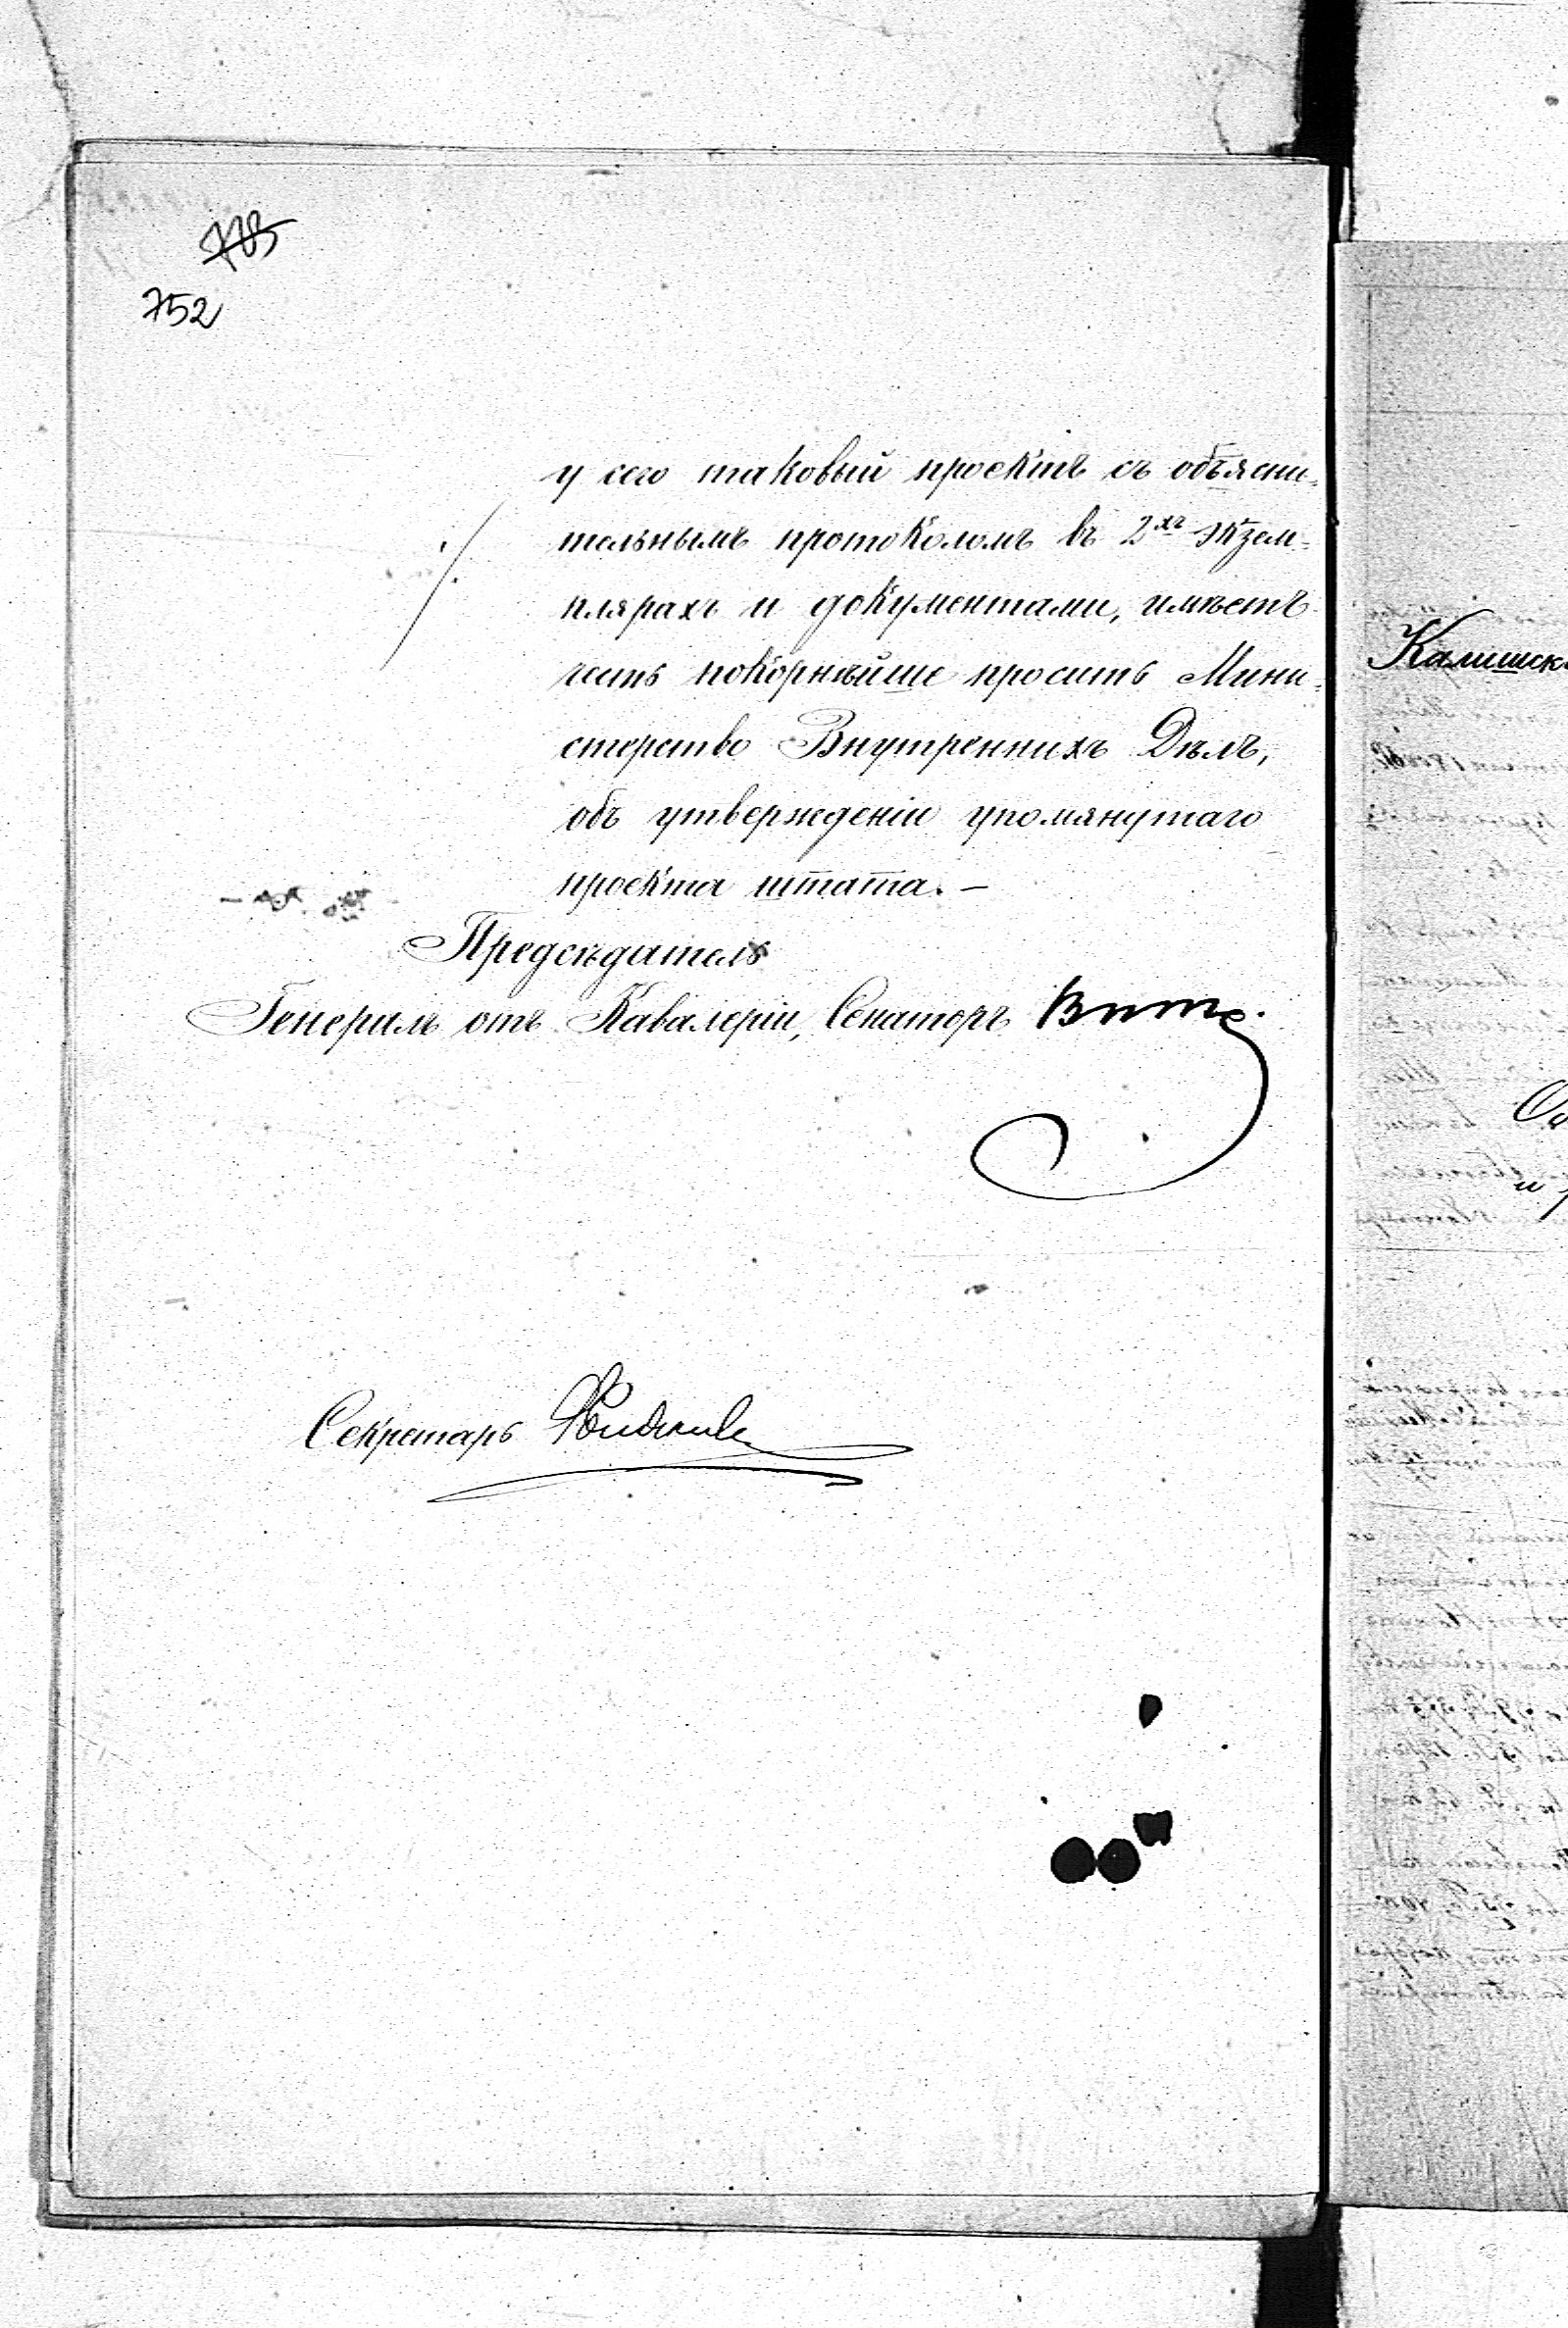 752
у сего таковый проектъ съ объясни-
тельнымъ протоколомъ въ 2хъ экзем-
плярахъ и документами, имѣетъ
честь покорнѣйше просить Мини-
стерство Внутреннихъ Дѣлъ,
объ утвержденіи упомянутаго
проекта штата. —
Предсѣдатель
Генералъ отъ Кавалеріи, Сенаторъ Витте.
Секретарь
Калишск